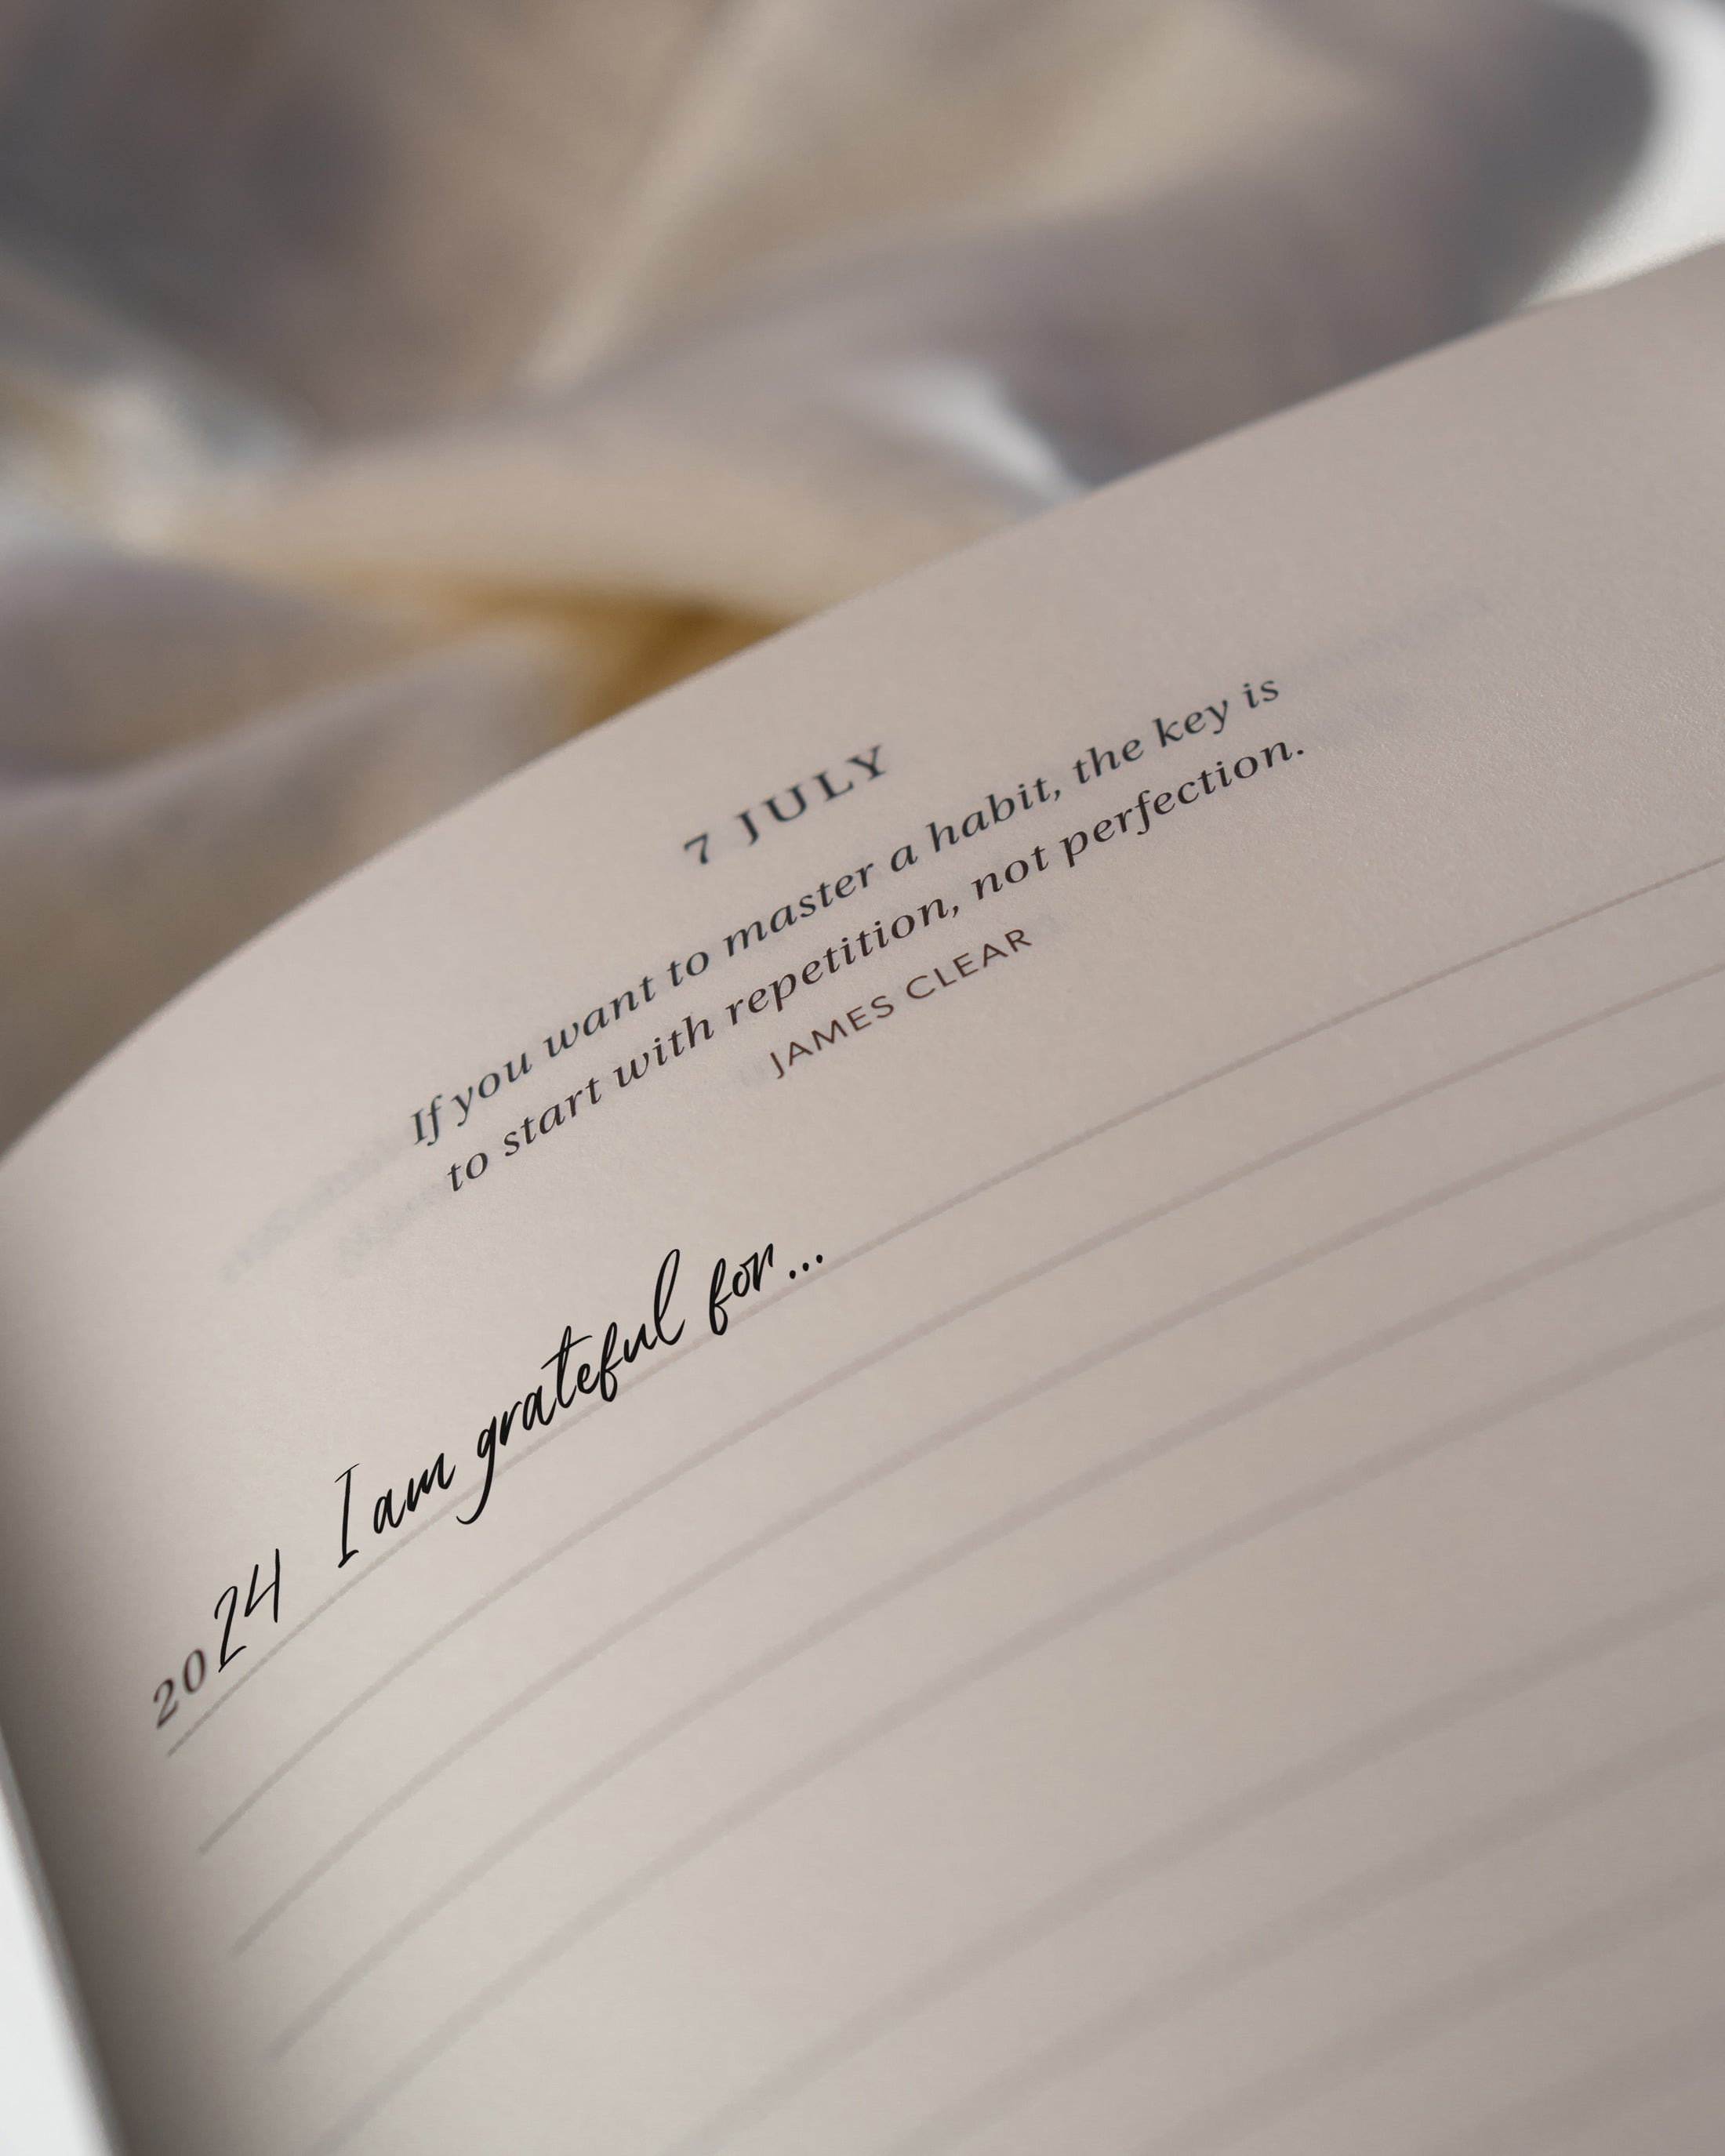 7 JULY
If you want to master a habit, the key is
to start with repetition, not perfection.
JAMES CLEAR
2024 I am grateful for...